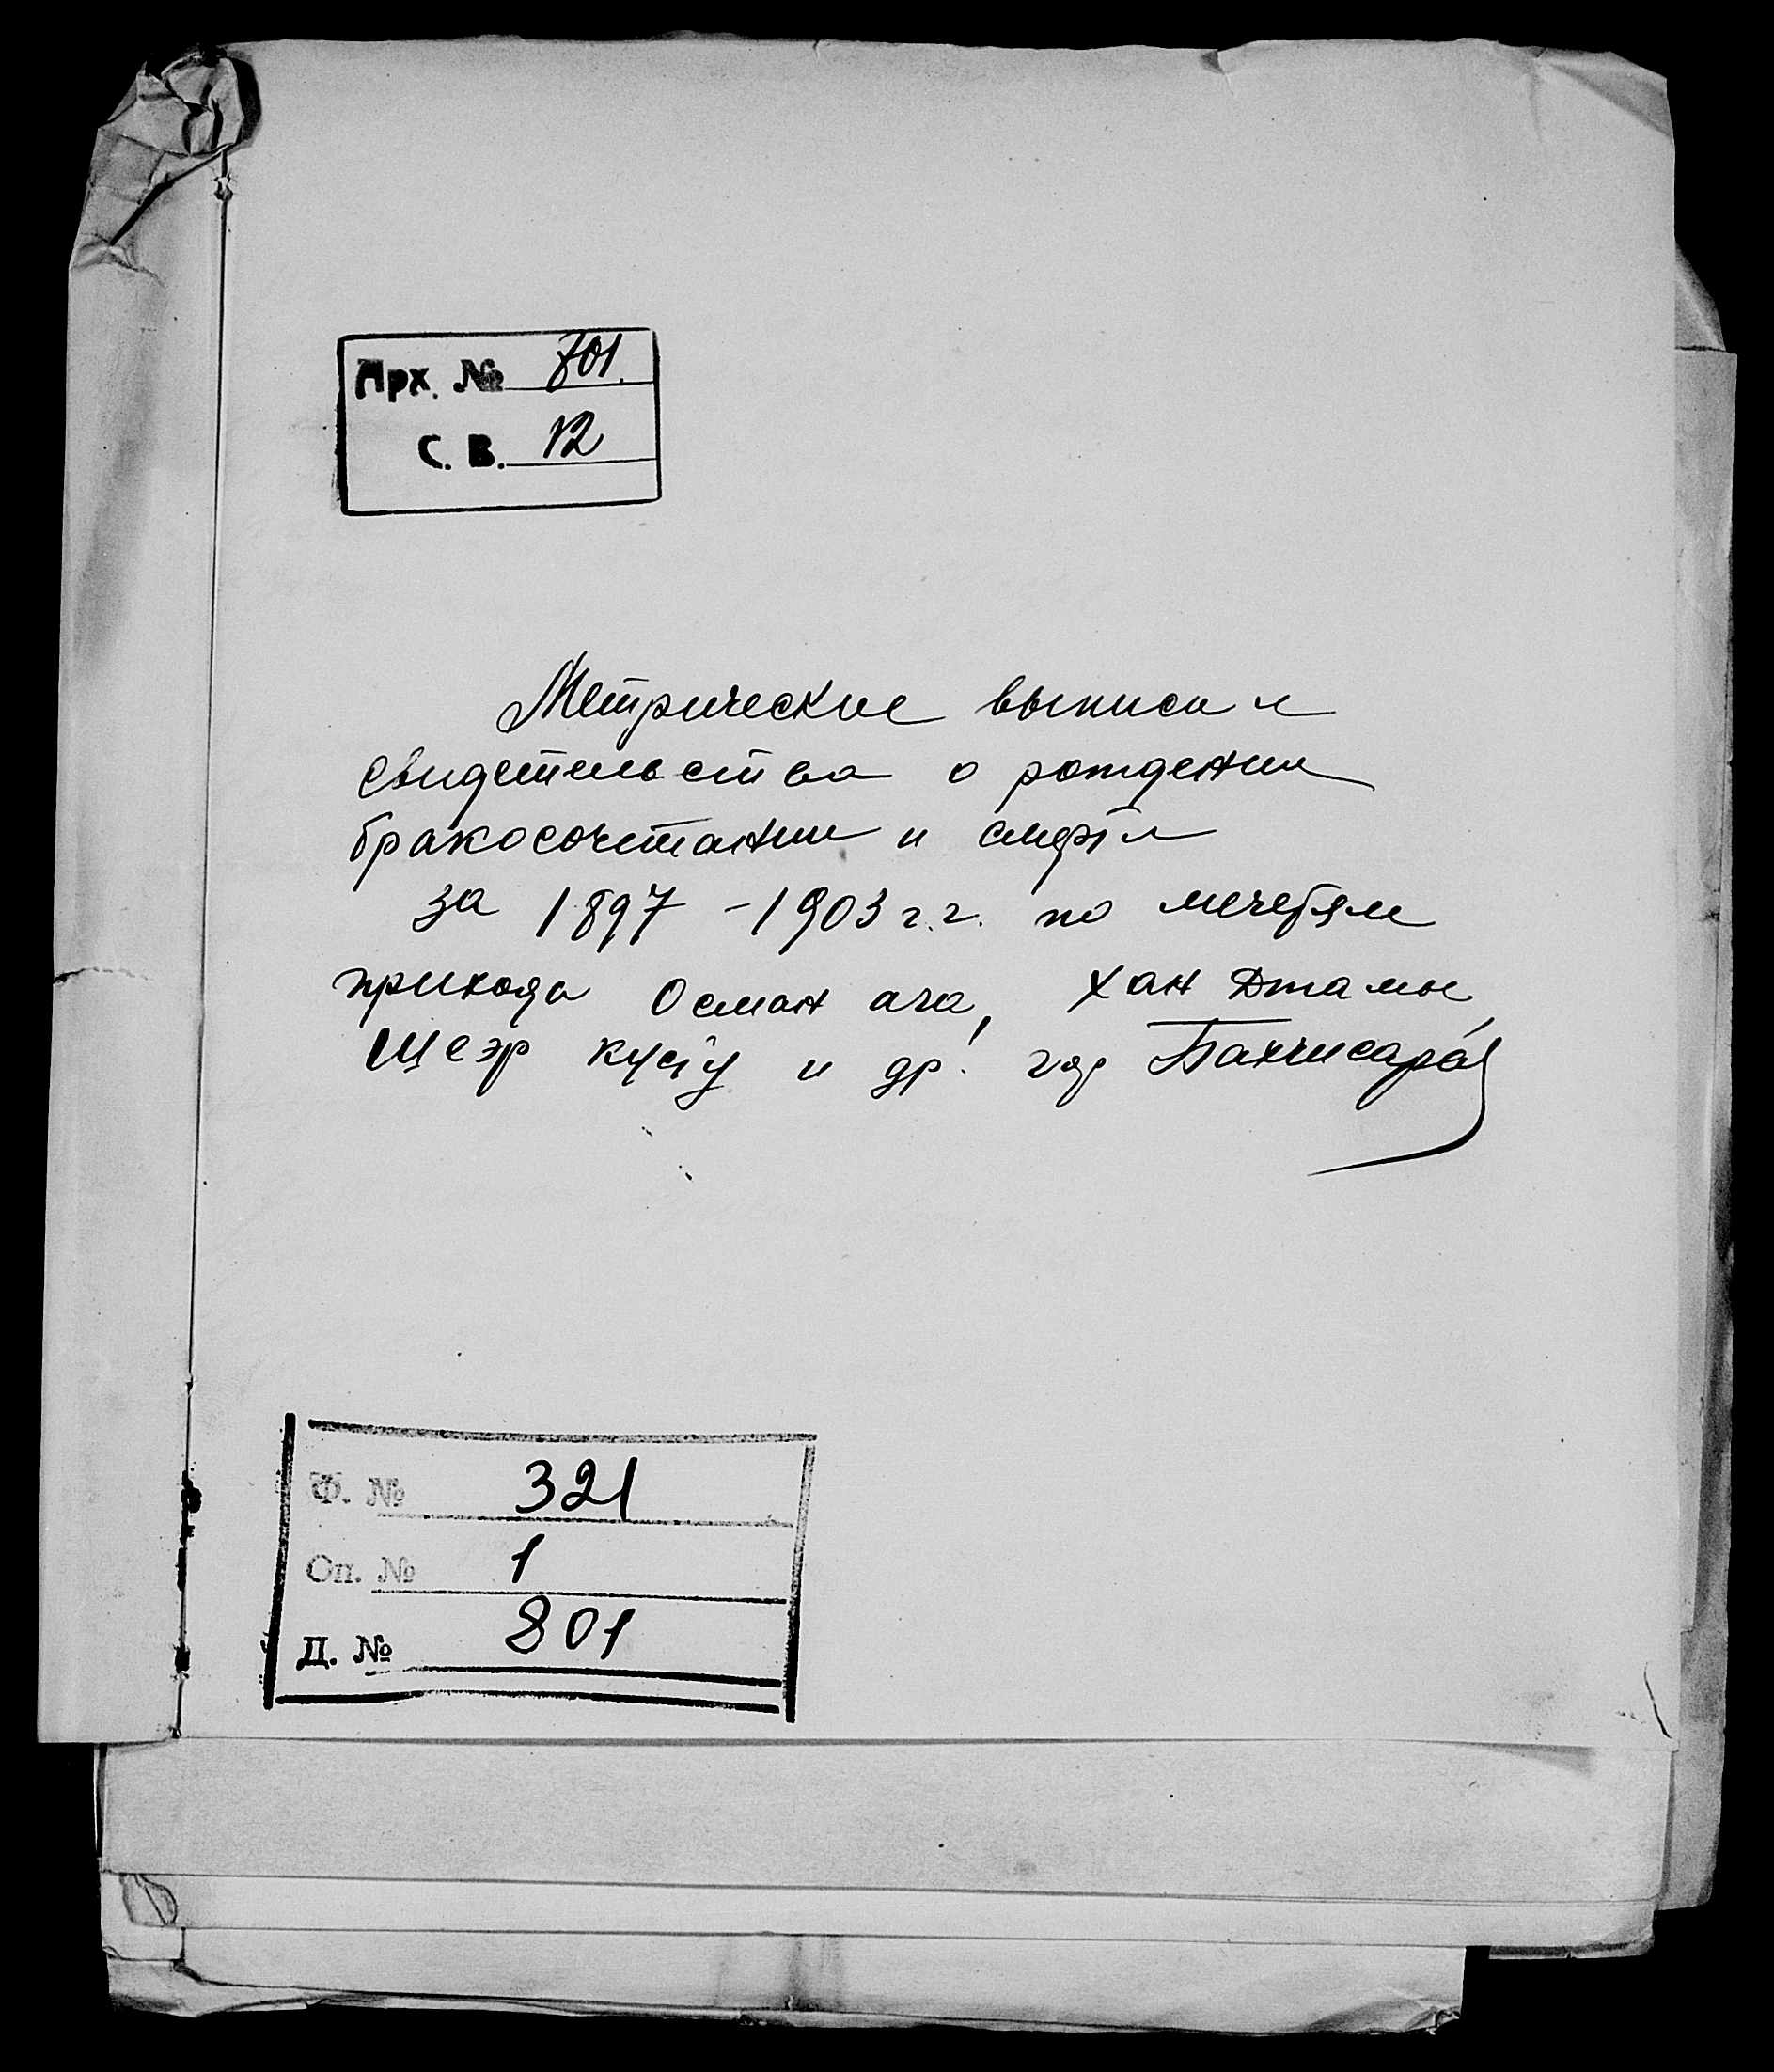 Арх. № 801.
С. В. 12
Метрические выписи и
свидетельства о рождении
бракосочетании и смерти
за 1897 - 1903 г.г. по мечетям
прихода Осман ага, Хан Джамы,
Шеэр кусту и др. гор Бахчисарай
Ф. № 321
Оп. № 1
Д. № 801